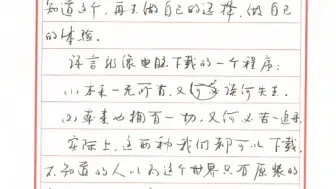 知道了个,再去做自己的选择,做自己
的体验。
语言就像电脑下载的一个程序:
(1)本来一无所有,又何谈何失去。
(2)本来也拥有一切,又何必苦一追寻
实际上,这两种我们都可以下载,
不知道的人以为这个世界只有原装的